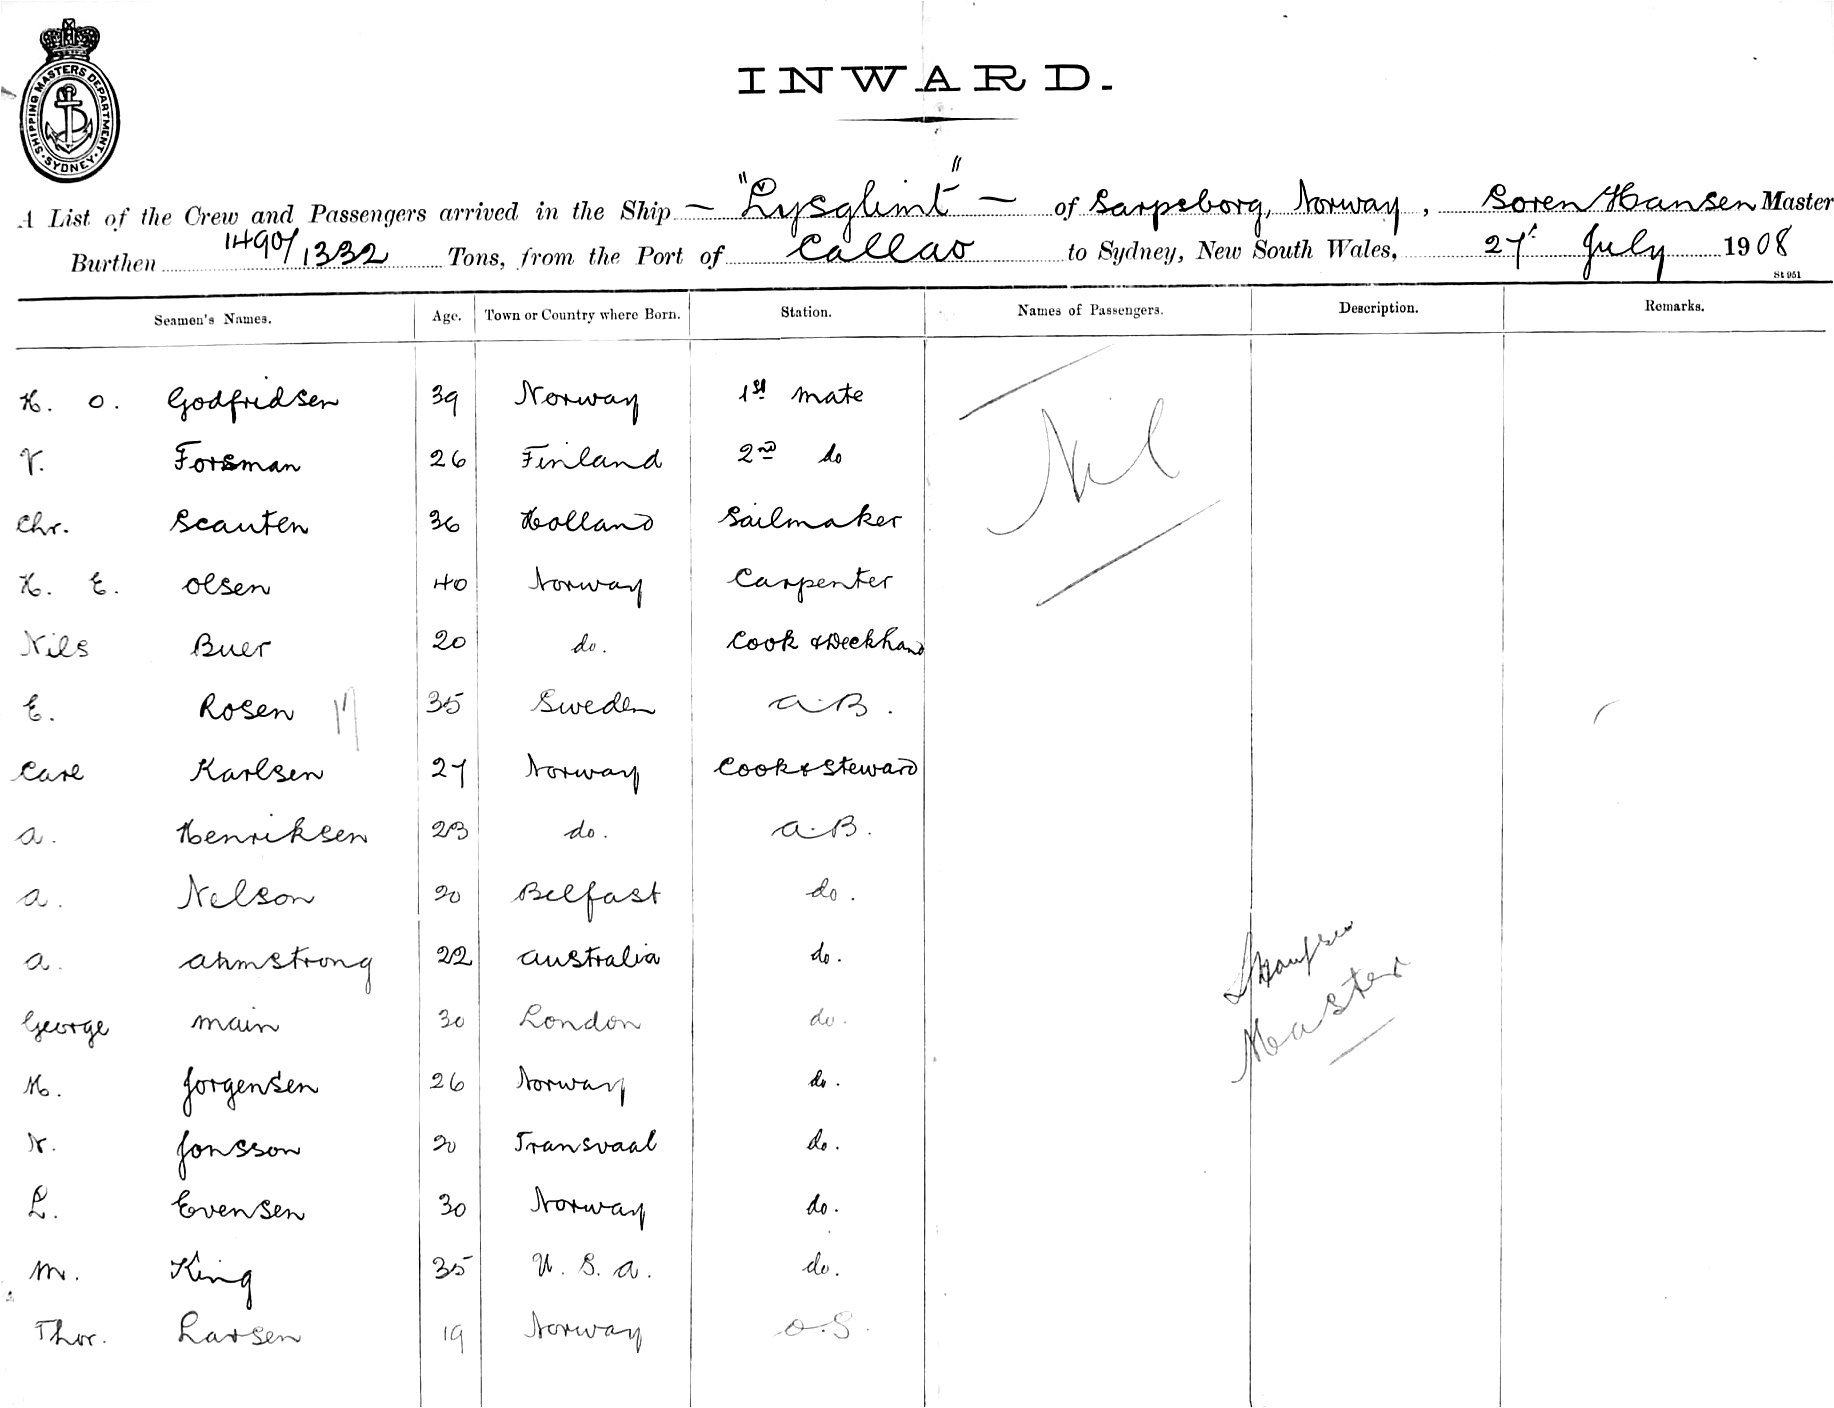 SHIPPING MASTERS DEPARTMENT
SYDNEY
INWARD.
A List of the Crew and Passengers arrived in the Ship — "Lysglimt" — of Sarpsborg, Norway, Soren Hansen Master
Burthen 1490/1332 Tons, from the Port of Callao to Sydney, New South Wales, 27 July 1908
St 951
Seamen's Names. Age. Town or Country where Born. Station. Names of Passengers. Description. Remarks.
H. O. Godfridsen 39 Norway 1st mate
Nil
V. Forsman 26 Finland 2nd do
Chr. Scauten 36 Holland Sailmaker
H. E. Olsen 40 Norway Carpenter
Nils Buer 20 do. Cook & Deckhand
E. Rosen 35 Sweden A.B.
Carl Karlsen 27 Norway Cook & Steward
A. Henriksen 23 do. A.B.
A. Nelson 20 Belfast do.
A. Ahmstrong 22 Australia do.
George Main 30 London do.
Master
M. Jorgensen 26 Norway do.
N. Jonsson 20 Transvaal do.
L. Evensen 30 Norway do.
M. King 35 U.S.A. do.
Thor. Larsen 19 Norway O.S.